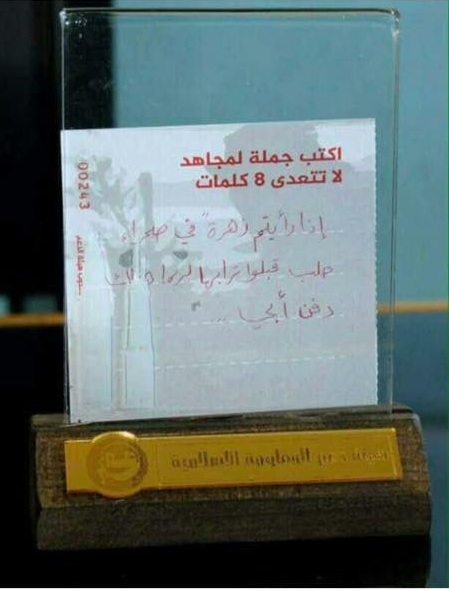 اكتب جملة لمجاهد
لا تتعدى 8 كلمات
00243
إذا رأيتم زهرةً في صحراء
حلب قبلوا ترابها لربما هناك
دفن أبي ...
هيئة دعم المقاومة الإسلامية